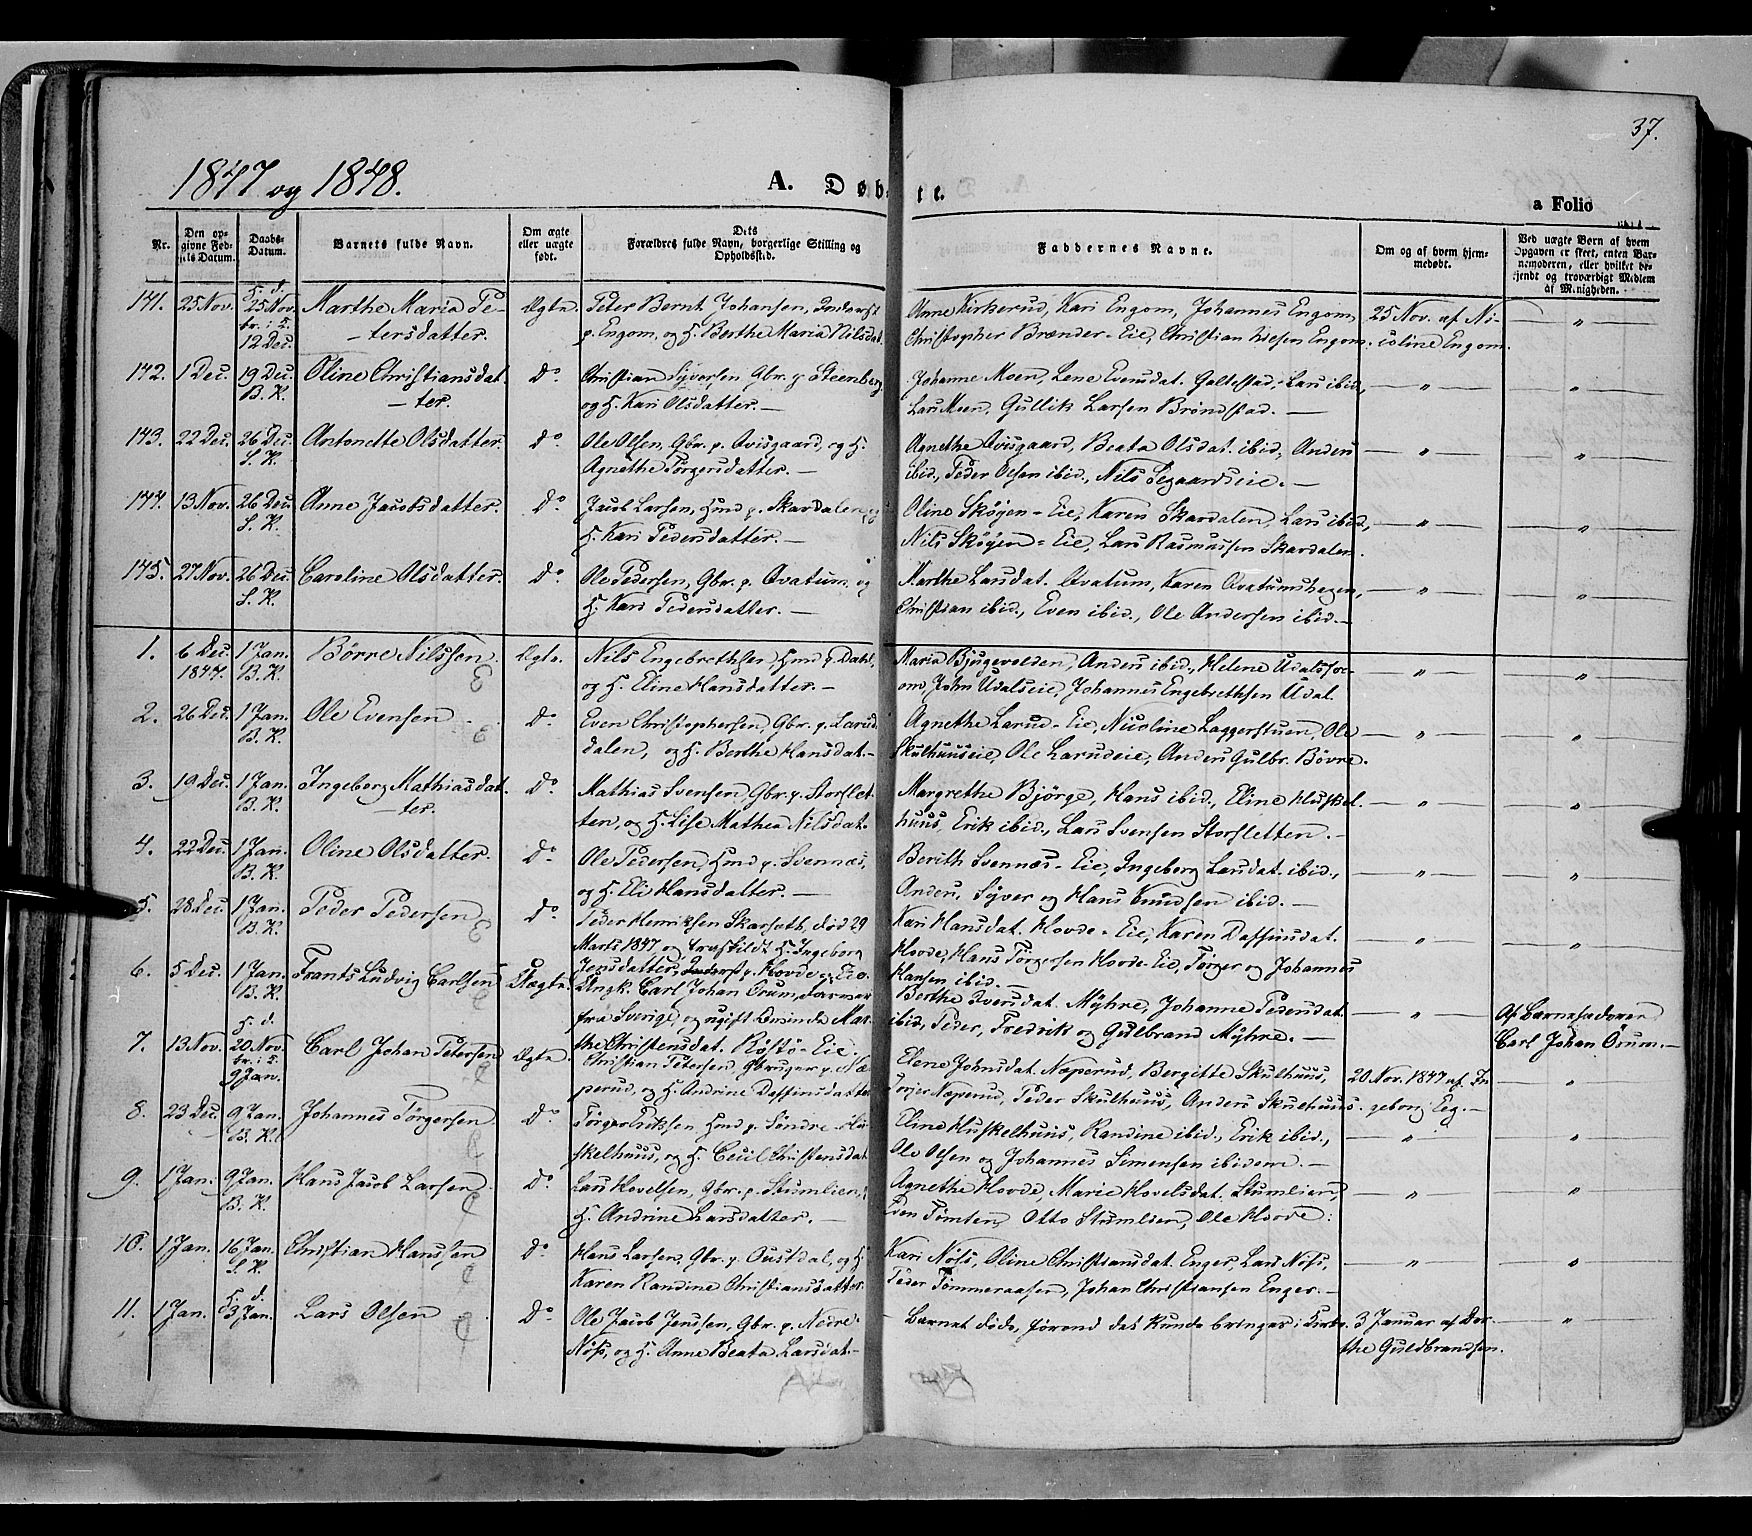 37.
1847 og 1848.
A. Døbte.
a Folio
Nr.
Den op-
givne Fød-
sels Datum.
Daabs-
Datum.
Barnets fulde Navn.
Om ægte
eller uægte
født.
Dets
Forældres fulde Navn, borgerlige Stilling og
Opholdssted.
Faddernes Navne.
Om og af hvem hjem-
medøbt.
Ved uægte Børn af hvem
Opgaven er skeet, enten Bar-
nemoderen, eller hvilket be-
kjendt og troværdigt Medlem
af Menigheden.
141. 25 Nov. H. d. 25 Nov. br. i K. 12 Dec. Marthe Maria Pe-
tersdatter. Ægte Peter Bernt Johansen, Inderst
p. Engom, og H. Berthe Maria Nilsdat.
Anne Kirkerud, Kari Engom, Johannes Engom,
Christopher Brænder-Eie, Christian Engom.
25 Nov. af Ni-
coline Engom. "
142. 1 Dec. 19 Dec. B. K. Oline Christiansdat-
ter. Do Christian Syversen Gbr. p. Steenberg
og H. Kari Olsdatter.
Johanne Moen, Lene Evensdat. Galtestad, Lars ibid,
Lars Moen, Gullik Larsen Brøndstad. " "
143. 22 Dec. 26 Dec. S. K. Antonette Olsdatter. Do Ole Olsen, Gbr. p. Qvisgaard, og H.
Agnethe Törgersdatter.
Agnethe Qvisgaard, Beata Olsdat. ibid, Anders
ibid, Peder Olsen ibid, Nils Segaardseie. " "
144. 13 Nov. 26 Dec. S. K. Anne Jacobsdatter. Do Jacob Larsen, Hmd p. Skardalen, og
H. Kari Pedersdatter.
Oline Skøyen-Eie, Karen Skardalen, Lars ibid,
Nils Skøyen-Eie, Lars Rasmussen Skardalen. " "
145. 27 Nov. 26 Dec. S. K. Caroline Olsdatter. Do Ole Pedersen, Gbr. p. Qvatum, og
H. Kari Pedersdatter.
Marthe Larsdat. Qvatum, Karen Qvatumshagen,
Christian ibid., Even ibid., Ole Andersen ibid. " "
1. 6 Dec. 1847. 1 Jan. B. K. Børre Nilssen. Ægte. Nils Engebrethsen Hmd p. Dahl,
og H. Eline Hansdatter.
Maria Bjugevolden, Anders ibid., Helene Udalsfor-
om, John Udalseie, Johannes Engebrethsen Udal. " "
2. 26 Dec. 1 Jan. B. K. Ole Evensen Do Even Christophersen, Gbr. p. Larud-
dalen, og H. Berthe Hansdat.
Agnethe Larud-Eie, Nicoline Laggerstuen, Ole
Skulhuuseie, Ole Larudeie, Anders Gulbr. Bövre. " "
3. 19 Dec. 1 Jan. B. K. Ingeborg Mathiasdat-
ter. Do Mathias Svensen, Gbr. p. Storslet-
ten, og H. Lise Mathea Nilsdat.
Margrethe Bjørge, Hans ibid., Eline Huskel-
huus, Erik ibid., Lars Svensen Storsletten. " "
4. 22 Dec. 1 Jan. B. K. Oline Olsdatter. Do Ole Pedersen, Hmd p. Svennæs,
og H. Eli Hansdatter.
Berith Svennæs-Eie, Ingeborg Larsdat. ibid.,
Anders, Syver og Hans Knudsen ibid. " "
5. 28 Dec. 1 Jan. B. K. Peder Pedersen Do Peder Henriksen Skarseth, död 29
Marts 1847 og fraskildt H. Ingeborg
Jensdatter, Inderst p. Hovde-Eie.
Kari Hansdat. Hovde-Eie, Karen Daffinsdat.
Hovde, Hans Törgersen Hovde-Eie, Törger og Johannes
Hansen ibid. " "
6. 5 Dec. 1 Jan. B. K. Frants Ludvig Carlsen Uægte Ungk. Carl Johan Orum,
fra Sverige, og ugift Qvinde Mar-
the Christensdat. Röstö-Eie.
Berthe Iversdat. Myhre, Johanne Pedersdat.
ibid, Peder, Fredrik og Gulbrand Myhre. "
Af Barnefaderen
Carl Johan Orum.
7. 13 Nov. H. d. 20 Nov. br. i K. 9 Jan. Carl Johan Petersen Ægte. Christian Petersen, Gbruger p. Næ-
perud, og H. Andrine Daffinsdatter
Elene Johnsdat. Næperud, Bergitte Skulhuus,
Næperud, Peder Skulhuus, Anders Skulhuus.
20 Nov. 1847 af In-
geborg Eeg. "
8. 23 Dec. 9 Jan. B. K. Johannes Törgersen Do Törger Eriksen, Hmd p. Söndre Hu-
skelhuus, og H. Cecil Christensdat.
Eline Huskelhuus, Randine ibid., Erik ibid.,
Ole Olsen og Johannes Simensen ibidem. " "
9. 1 Jan. 9 Jan. B. K. Hans Jacob Larsen Do Lars Hovelsen, Gbr. p. Stumlien,
H. Andrine Larsdatter.
Agnethe Hovde, Marie Hovelsdat. Stumlien,
Even Tomten, Otto Stumlien, Ole Hovde. " "
10. 1 Jan. 16 Jan. S. K. Christian Hanssen Do Hans Larsen, Gbr. p. Oustdal, og H.
Karen Randine Christiansdatter.
Kari Nöss, Oline Christiansdat. Enger, Lars Nöss,
Peder Tömmeraasen, Johan Christiansen Enger. " "
11. 1 Jan. H. d. 3 Jan. Lars Olsen Do Ole Jacob Jendsen, Gbr. p. Nedre-
Nöss, og H. Anne Beata Larsdat.
Barnet döde, förend det kunde bringes i Kirke.
3 Januar af Dor-
the Guldbrandsen. "